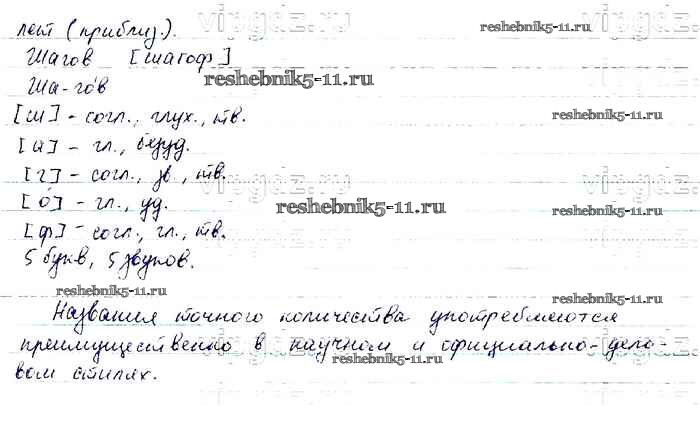 лет (приблиз.).
Шагов [шагоф]
Ша-го́в
[ш] - согл., глух., тв.
[а] - гл., безуд.
[г] - согл., зв., тв.
[о́] - гл., уд.
[ф] - согл., гл., тв.
5 букв, 5 звуков.
Названия точного количества употребляются
преимущественно в научном и официально-дело-
вом стилях.
reshebnik5-11.ru
reshebnik5-11.ru
reshebnik5-11.ru
reshebnik5-11.ru
reshebnik5-11.ru
reshebnik5-11.ru
reshebnik5-11.ru
reshebnik5-11.ru